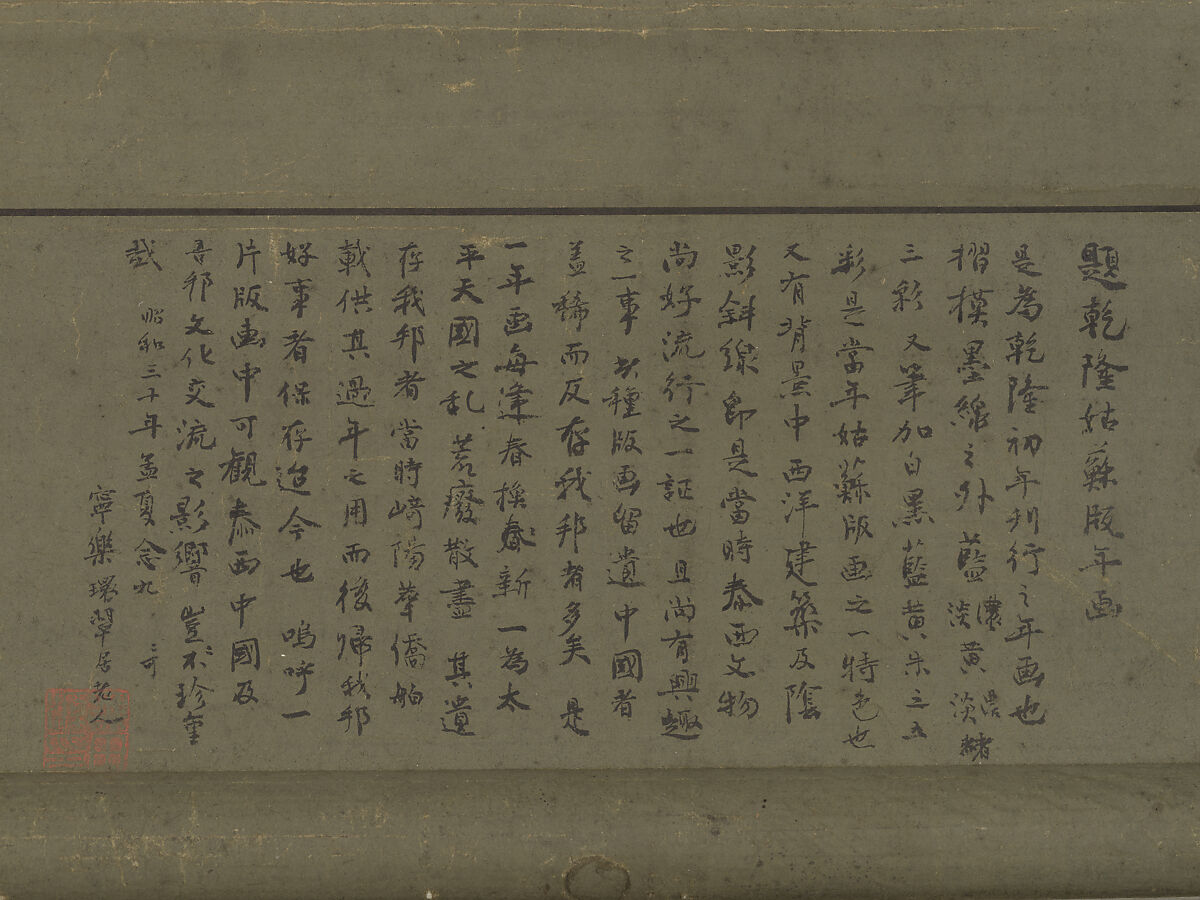 題乾隆姑蘇版年画
是為乾隆初年刊行之年画也
摺模墨線之外藍濃淡黄濃淡赭
三彩又筆加白黒藍黄朱三五
彩是當年姑蘇版画之一特色也
又有背景中西洋建築及陰
影斜線即是當時泰西文物
尚好流行之一証也且尚有興趣
之一事此種版画留遺中國者
蓋稀而反存我邦者多矣是
一年画每逢春換春新一為太
平天國之乱荒廢散盡其遺
存我邦者當時崎陽華僑舶
載供其過年之用而後帰我邦
好事者保存迨今也嗚呼一
片版画中可觀泰西中國及
吾邦文化交流之影響豈不珍重
哉 昭和三十年孟夏念九
寧樂環翠居老人